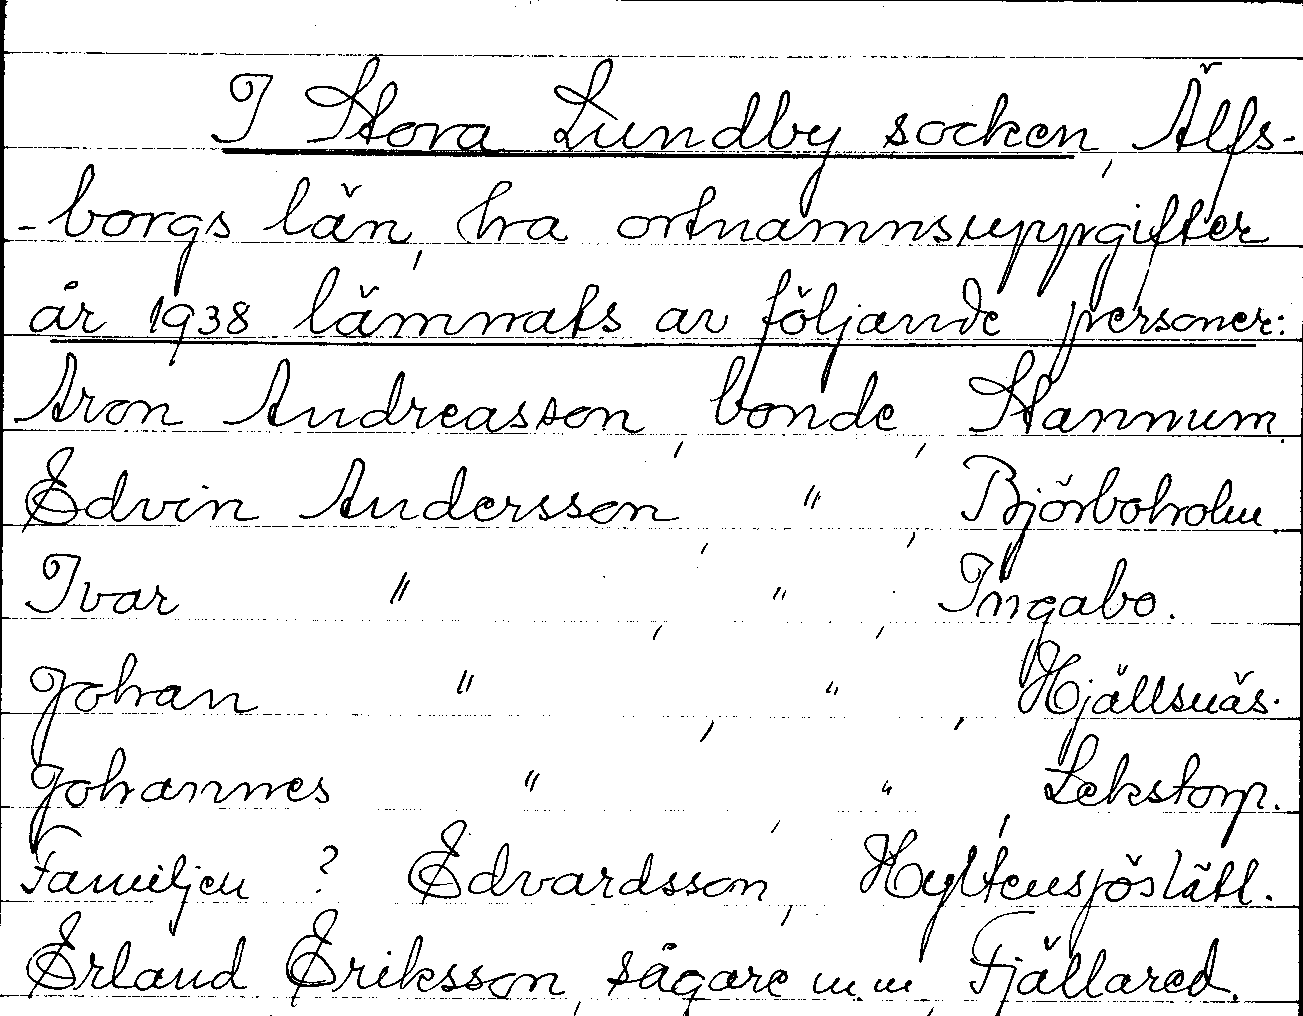 I Stora Lundby socken, Älfs-
-borgs län, ha ortnamnsuppgifter
år 1938 lämnats av följande personer:
Aron Andreasson, bonde, Stannum.
Edvin Andersson, ", Björboholm.
Ivar ", ", Ingabo.
Johan ", ", Hjällsnäs.
Johannes ", ", Lekstorp.
Familjen ? Edvardsson, Hyltensjöslätt.
Erland Eriksson, sågare m.m, Fjällared.